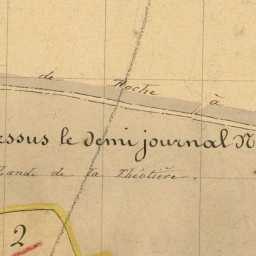 de Roche à
essus le demi journal N
Lande de la Théotière.
2